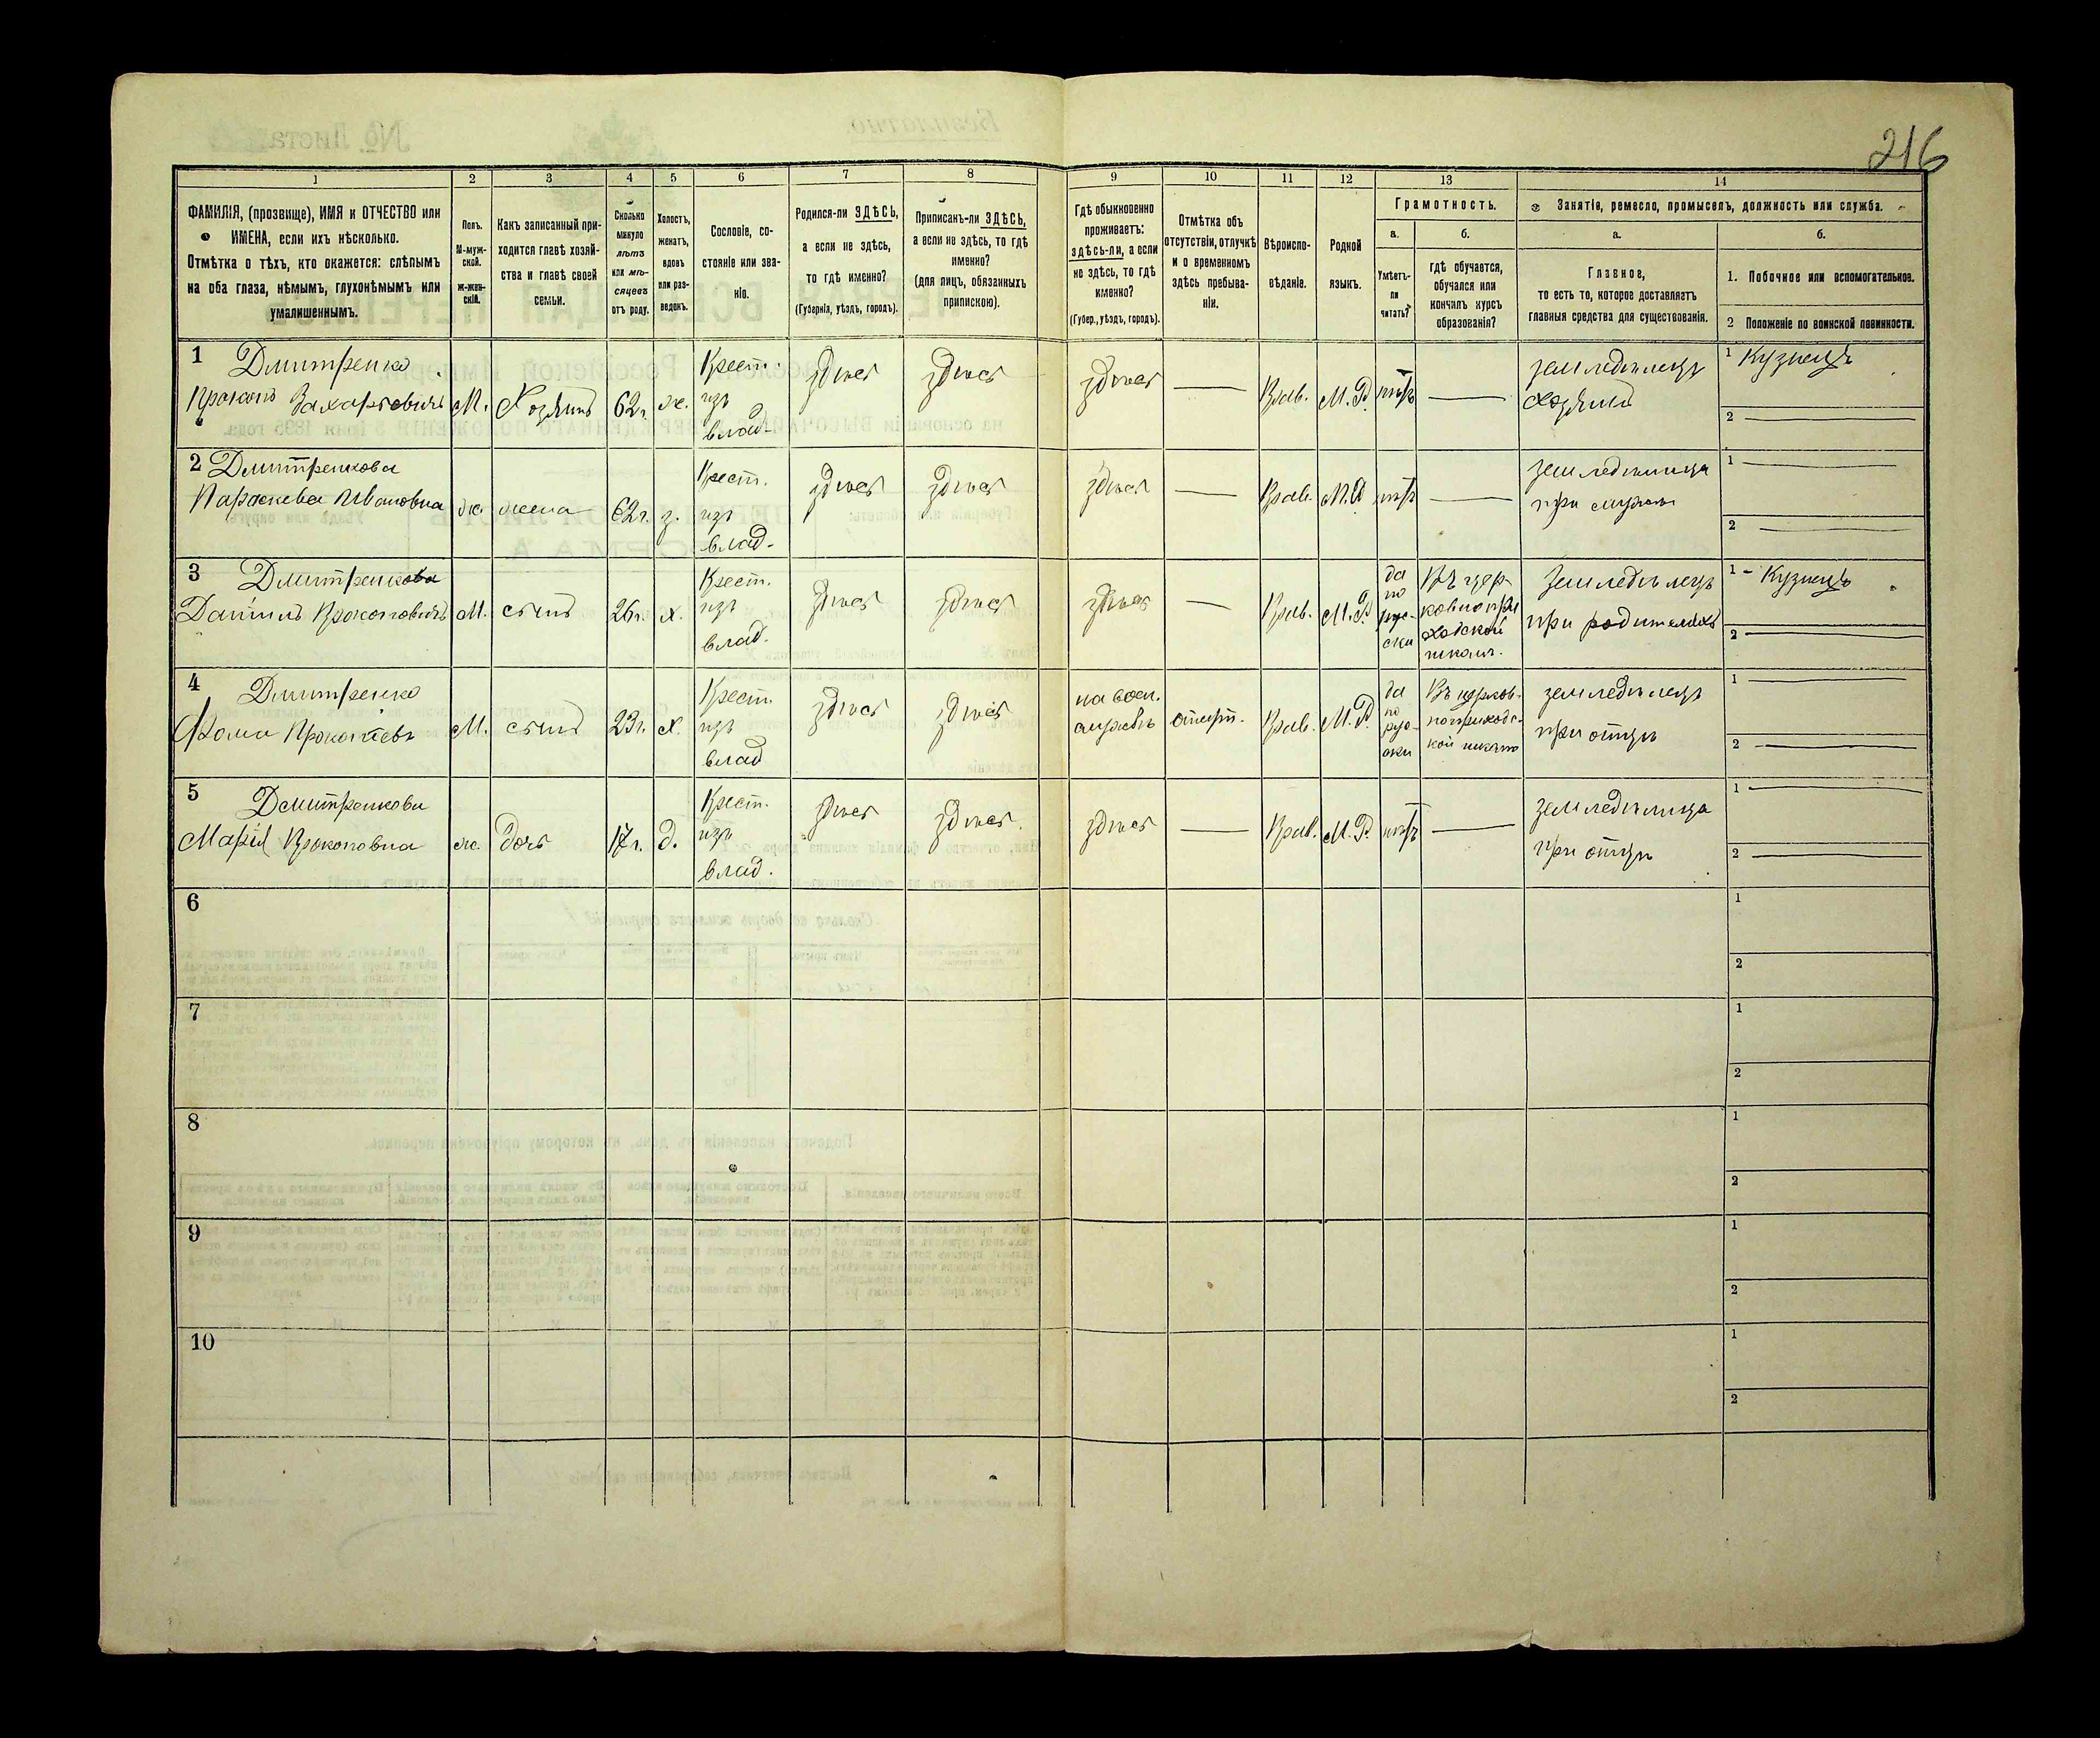 216
1
2
3
4
5
6
7
8
9
10
11
12
13
14
ФАМИЛІЯ, (прозвище), ИМЯ и ОТЧЕСТВО или
ИМЕНА, если ихъ нѣсколько.
Отмѣтка о тѣхъ, кто окажется: слѣпымъ
на оба глаза, нѣмымъ, глухонѣмымъ или
умалишеннымъ.
Полъ.
М-муж-
ской.
ж-жен-
скій.
Какъ записанный при-
ходится главѣ хозяй-
ства и главѣ своей
семьи.
Сколько
минуло
лѣтъ
или мѣ-
сяцевъ
отъ роду.
Холостъ,
женатъ,
вдовъ
или раз-
веденъ.
Сословіе, со-
стояніе или зва-
ніе.
Родился-ли ЗДѢСЬ,
а если не здѣсь,
то гдѣ именно?
(Губернія, уѣздъ, городъ).
Приписанъ-ли ЗДѢСЬ,
а если не здѣсь, то гдѣ
именно?
(для лицъ, обязанныхъ
припискою).
Гдѣ обыкновенно
проживаетъ:
здѣсь-ли, а если
не здѣсь, то гдѣ
именно?
(Губер., уѣздъ, городъ).
Отмѣтка объ
отсутствіи, отлучкѣ
и о временномъ
здѣсь пребыва-
ніи.
Вѣроиспо-
вѣданіе.
Родной
языкъ.
Грамотность.
а.
Умѣетъ-
ли
читать?
б.
гдѣ обучается,
обучался или
кончилъ курсъ
образованія?
Занятіе, ремесло, промыселъ, должность или служба.
а.
Главное,
то есть то, которое доставляетъ
главныя средства для существованія.
б.
1. Побочное или вспомогательное.
2 Положеніе по воинской повинности.
1 Дмитренко
Прокопъ Захарьевичъ
М.
Хозяинъ
62 г.
ж.
Крест.
изъ
влад.
здѣсь
здѣсь
здѣсь
Прав.
М. Р.
нѣтъ
земледѣлецъ
хозяинъ
1 Кузнецъ
2
2 Дмитренкова
Параскева Ивановна
ж.
жена
62 г.
з.
Крест.
изъ
влад.
здѣсь
здѣсь
здѣсь
Прав.
М. Р.
нѣтъ
земледѣлица
при мужѣ
1
2
3 Дмитренкова
Даніилъ Прокоповичъ
М.
сынъ
26 г.
х.
Крест.
изъ
влад.
здѣсь
здѣсь
здѣсь
Прав.
М. Р.
да
по
рус-
ски
Въ цер-
ковно при
ходской
школѣ.
Земледѣлецъ
при родителяхъ
1 Кузнецъ
2
4 Дмитренко
Фома Прокопіевъ
М.
сынъ
23 г.
х.
Крест.
изъ
влад
здѣсь
здѣсь
на воен.
службѣ
Прав.
М. Р.
да
по
рус-
ски
Въ церков-
ноприходс-
кой
земледѣлецъ
при отцѣ
1
2
5 Дмитренкова
Марія Прокоповна
ж.
дочь
17 г.
д.
Крест.
изъ
влад.
здѣсь
здѣсь
здѣсь
Прав.
М. Р.
нѣтъ
земледѣлица
при отцѣ
1
2
6
1
2
7
1
2
8
1
2
9
1
2
10
1
2